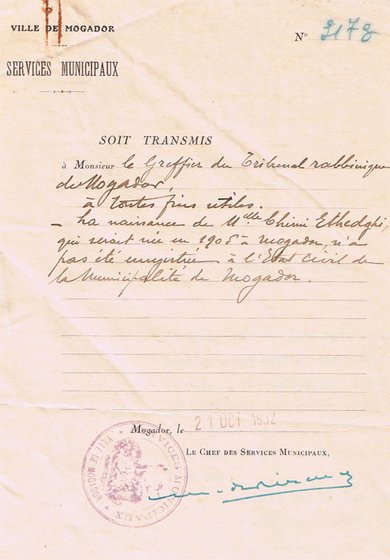 VILLE DE MOGADOR
N° 3178
SERVICES MUNICIPAUX
SOIT TRANSMIS
à Monsieur le Greffier du Tribunal rabbinique
de Mogador,
à toutes fins utiles.
- La naissance de Melle Chimi Elhedghi,
qui serait née en 1905 à Mogador, n'a
pas été enregistrée à l'Etat Civil de
la Municipalité de Mogador.
Mogador, le 21 OCT 1932
LE CHEF DES SERVICES MUNICIPAUX,
SERVICES MUNICIPAUX
VILLE DE MOGADOR